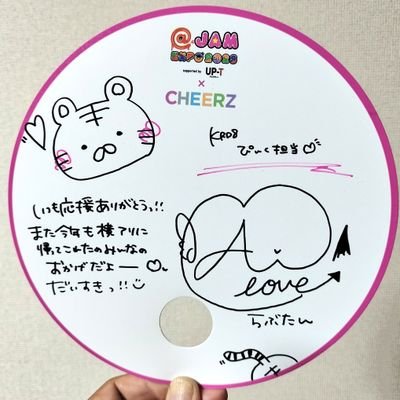 @JAM
EXPO 2023
supported by UP-T
×
CHEERZ
KRD8
ぴんく担当♡
いつも応援ありがとうっ!!
また今年も横アリに
帰ってこれたのみんなの
おかげだよー♡
だいすきっ!!
Ai
love
らぶたん